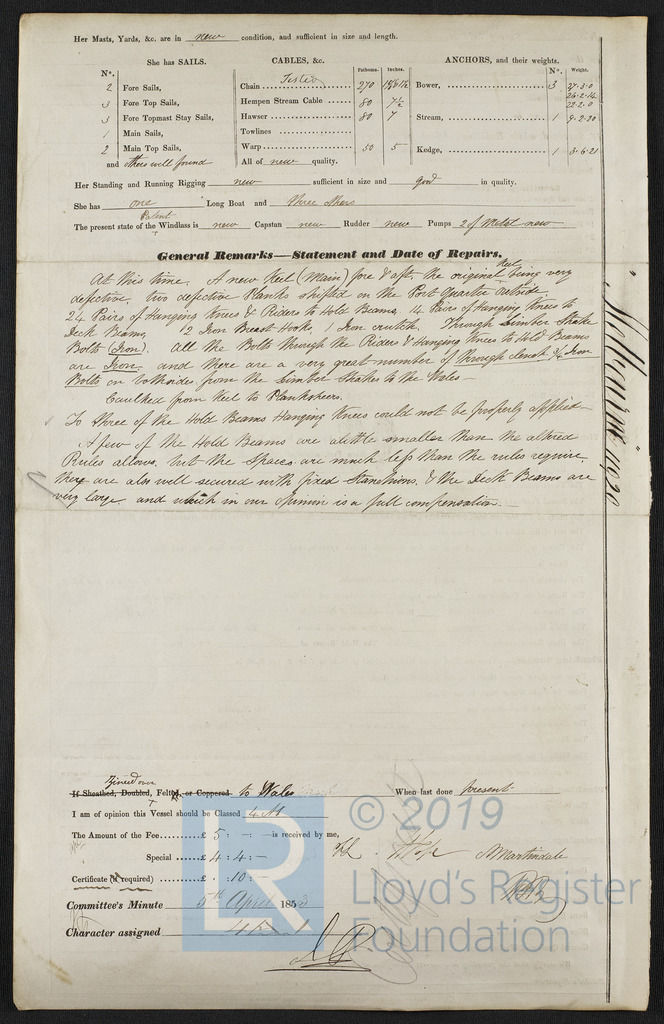 Her Masts, Yards, &c. are in new condition, and sufficient in size and length.
She has SAILS.
CABLES, &c.
ANCHORS, and their weights.
N°.
Fathoms.
Inches.
N°.
Weight.
2 Fore Sails,
Chain Tested 270
Bower, 3 27-3-0
3 Fore Top Sails,
Hempen Stream Cable 80 7½
26-2-14
22-2-0
3 Fore Topmast Stay Sails,
Hawser 80 7
Stream, 1 9-2-20
1 Main Sails,
Towlines
2 Main Top Sails,
Warp 50 5
Kedge, 1 3-6-21
and others well found
All of new quality.
Her Standing and Running Rigging new sufficient in size and good in quality.
She has one Long Boat and three others
The present state of the Patent Windlass is new Capstan new Rudder new Pumps 2 of Metal new
General Remarks—Statement and Date of Repairs.
At this time. A new Keel (Main) fore & aft, the original Keel being very
defective, two defective Planks shifted on the Port Quarter outside
24 Pairs of Hanging Knees & Riders to Hold Beams. 14 Pairs of Hanging Knees to
Deck Beams, 12 Iron Breast Hooks, 1 Iron crutch. Through Limber Strake
Bolts (Iron). All the Bolts through the Riders & Hanging Knees to Hold Beams
are Iron and there are a very great number of through clench ¾ Iron
Bolts on both sides from the Limber Strakes to the Wales —
Caulked from Keel to Planksheers.
To three of the Hold Beams Hanging Knees could not be properly applied
A few of the Hold Beams are a little smaller than the altered
Rules allows, but the Spaces are much less than the rules require,
there are also well secured with fixed Stanchions, & the Deck Beams are
very large and which in our opinion is a full compensation. —
Melbourne 1920
If Sheathed, Doubled, Felted, or Coppered Zined over to Wales
When last done present
I am of opinion this Vessel should be Classed 4 A1
The Amount of the Fee £ 5 : - : - is received by me,
Special £ 4 : 4 : -
Certificate (if required) £ . : 10 : -
A Martindale
Committee's Minute 5th April 1853
Character assigned 4
© 2019
Lloyd's Register
Foundation
LR